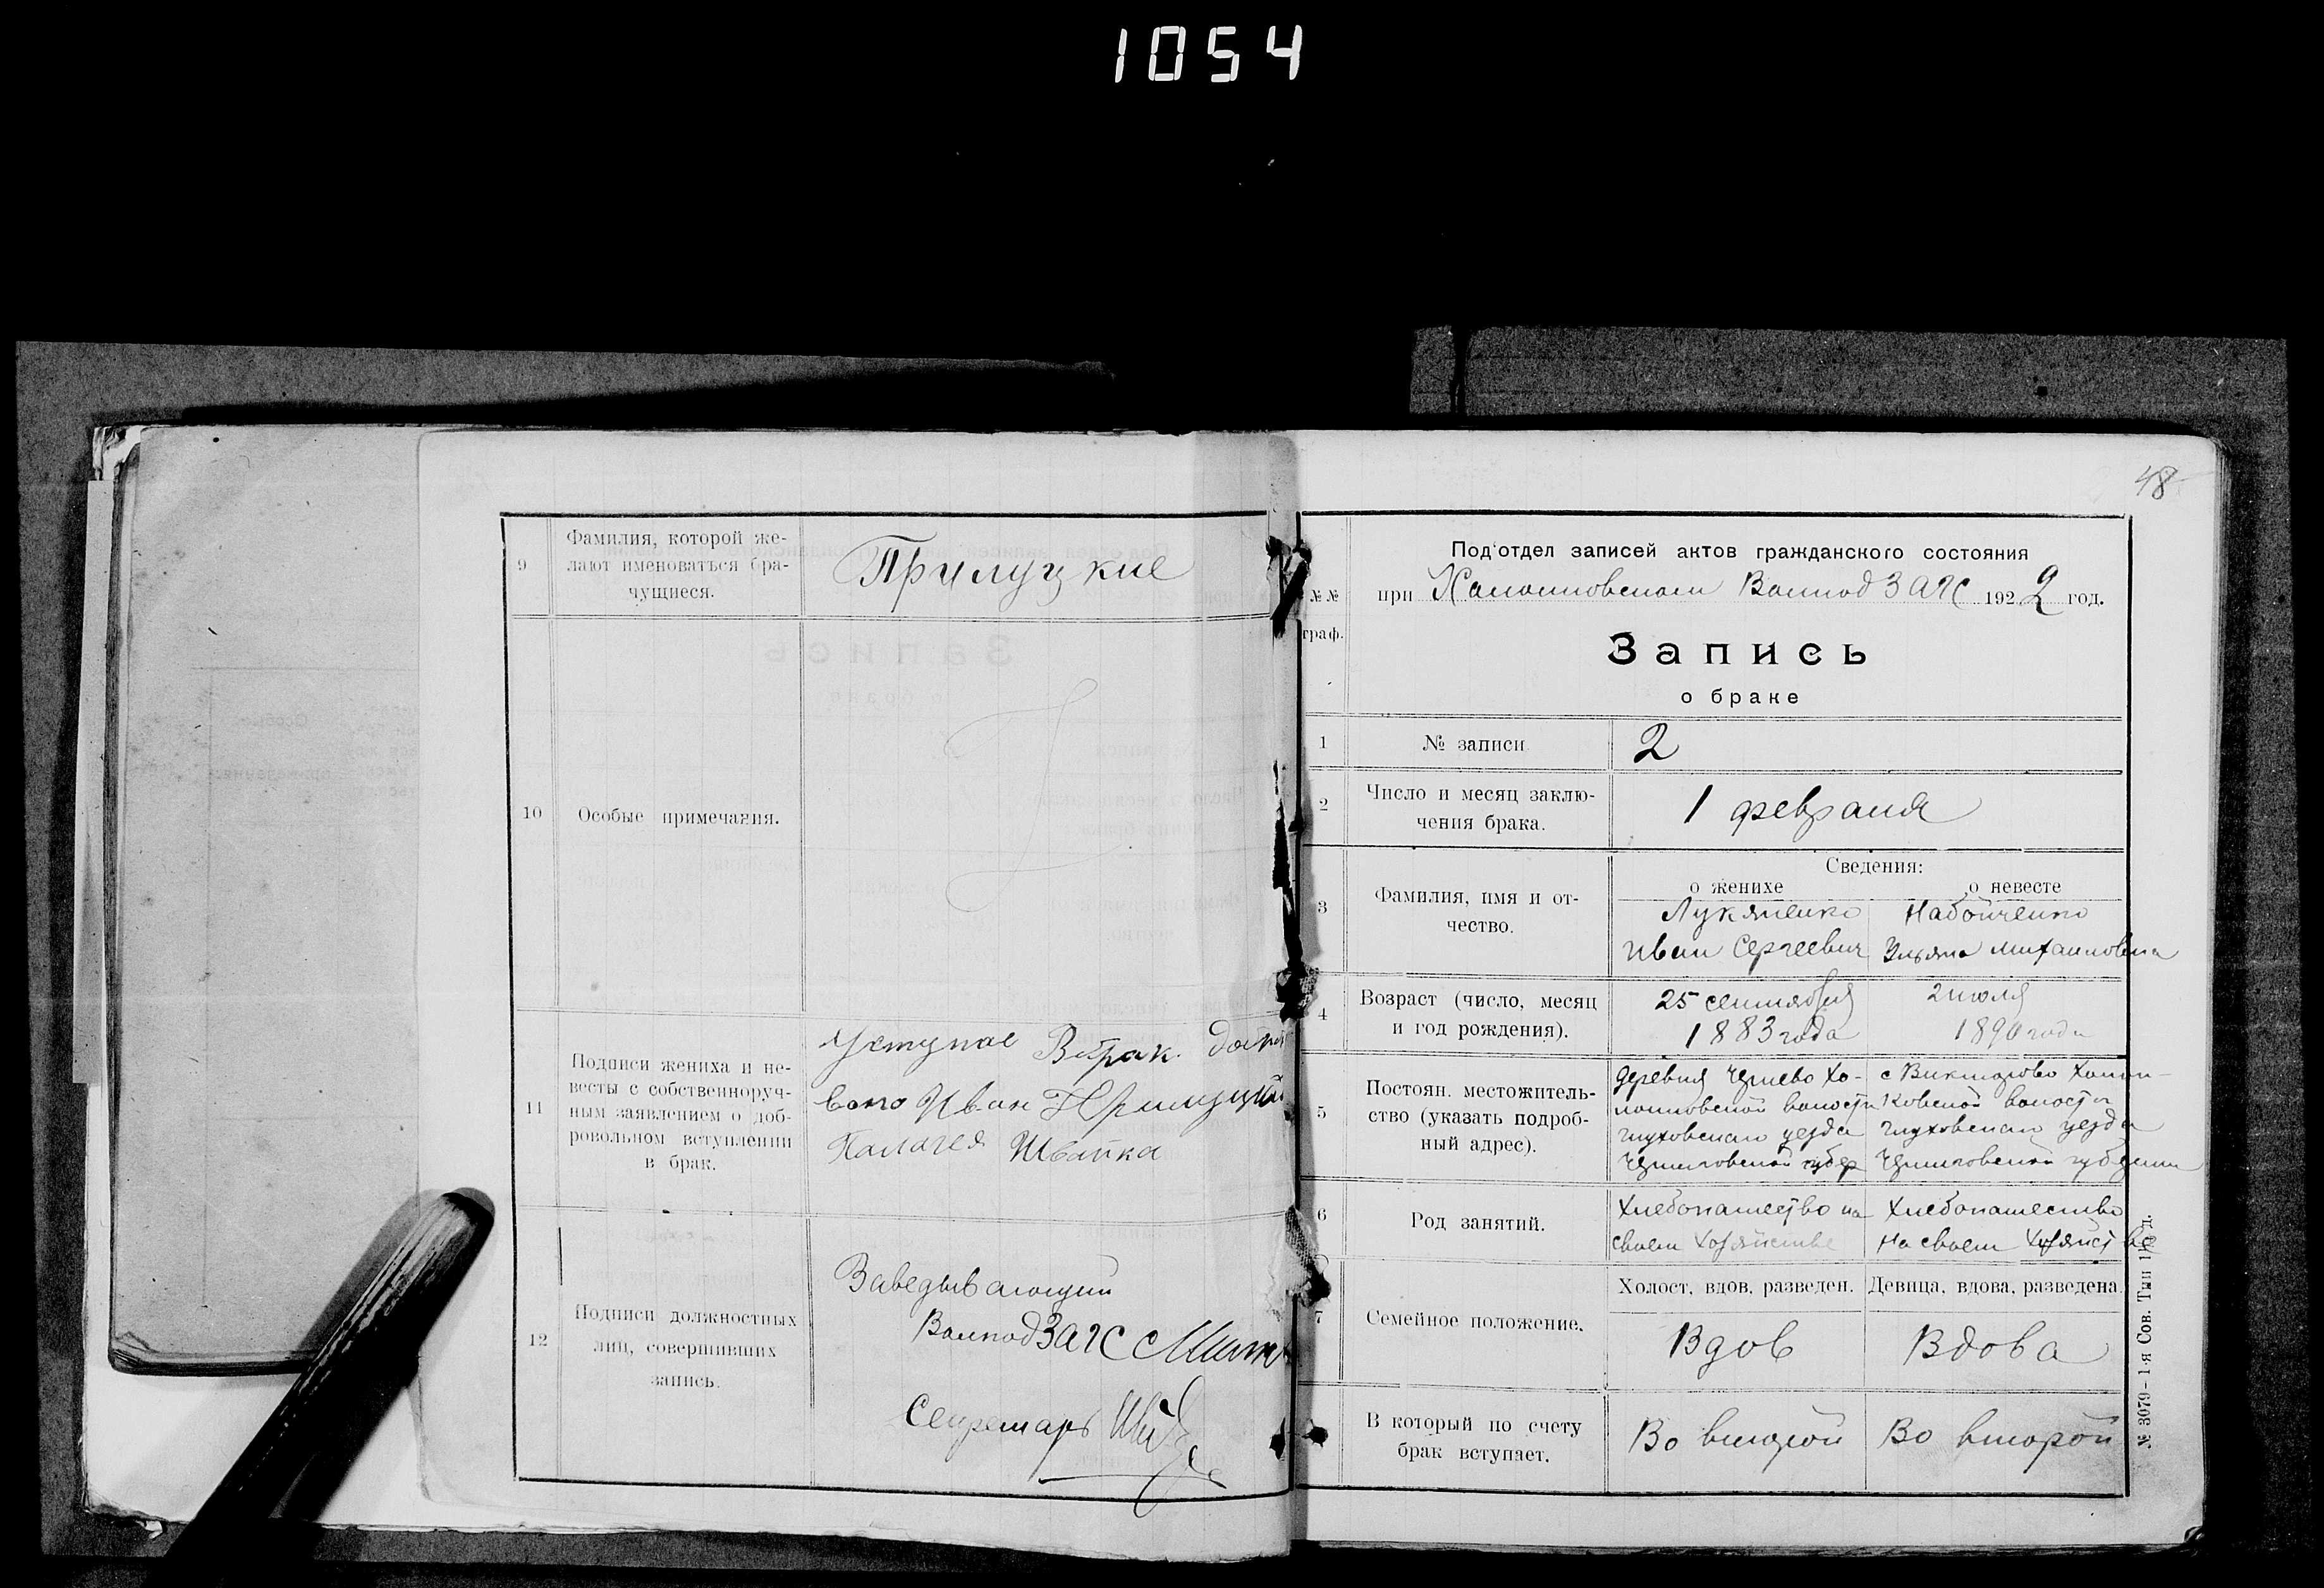 1054
9
Фамилия, которой же-
лают именоваться бра-
чущиеся.
Прилуцкие
10
Особые примечания.
11
Подписи жениха и не-
весты с собственноруч-
ным заявлением о доб-
ровольном вступлении
в брак.
Уступае В брак добро
вольно Иван Прилуцкий
Палагея Швайка
12
Подписи должностных
лиц, совершивших
запись.
Заведывающий
ВолподЗАГС
Секретарь
48
№№
граф.
Под'отдел записей актов гражданского состояния
при ВолподЗАГС 1922 год.
Запись
о браке
1
№ записи
2
2
Число и месяц заклю-
чения брака.
1 февраля
Сведения:
о женихе
о невесте
3
Фамилия, имя и от-
чество.
Лукяненко
Иван Сергеевич
Набойченко
Ульяна Михаиловна
4
Возраст (число, месяц
и год рождения).
25 сентября
1883 года
2 июля
1890 года
5
Постоян. местожитель-
ство (указать подроб-
ный адрес).
деревня Хо-
волости
глуховского уезда
Черниговской губер
с Викторово
ковской волости
глуховского уезда
Черниговской губернии
6
Род занятий.
Хлебопашество на
своем хозяйстве
Хлебопашество
на своем хозяйстве
7
Семейное положение.
Холост, вдов, разведен.
Девица, вдова, разведена.
Вдов
Вдова
В который по счету
брак вступает.
Во второй
Во второй
№ 3079-1-я Сов. Тип